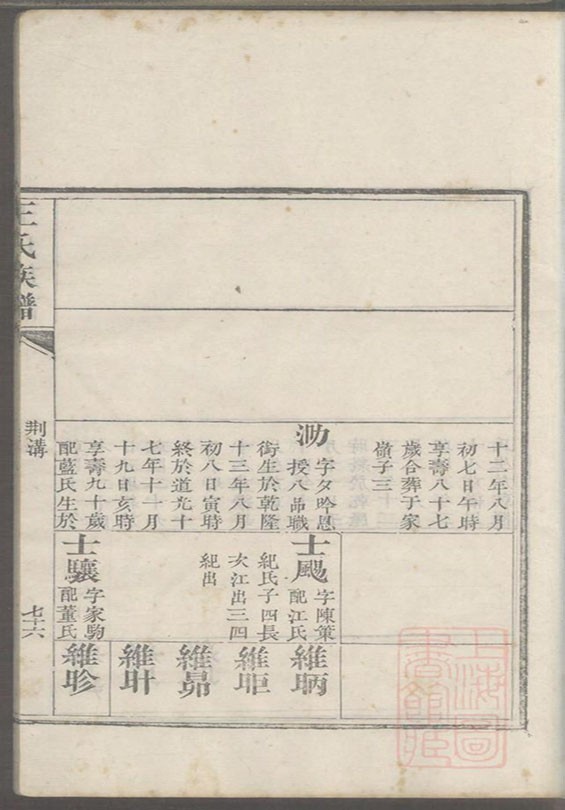 十二年八月
初七日午時
享壽八十七
歲合葬于家
嶺子三
泐
字夕吟恩
授八品職
銜生於乾隆
十三年八月
初八日寅時
終於道光十
七年十一月
十九日亥時
享壽九十歲
配藍氏生於
士颺
字陳策
配江氏
紀氏子四長
次江出三四
紀出
士驤
字家駒
配董氏
維昞
維昛
維昴
維旪
維昣
王氏族譜
荆溝
七十六
上海圖書館藏